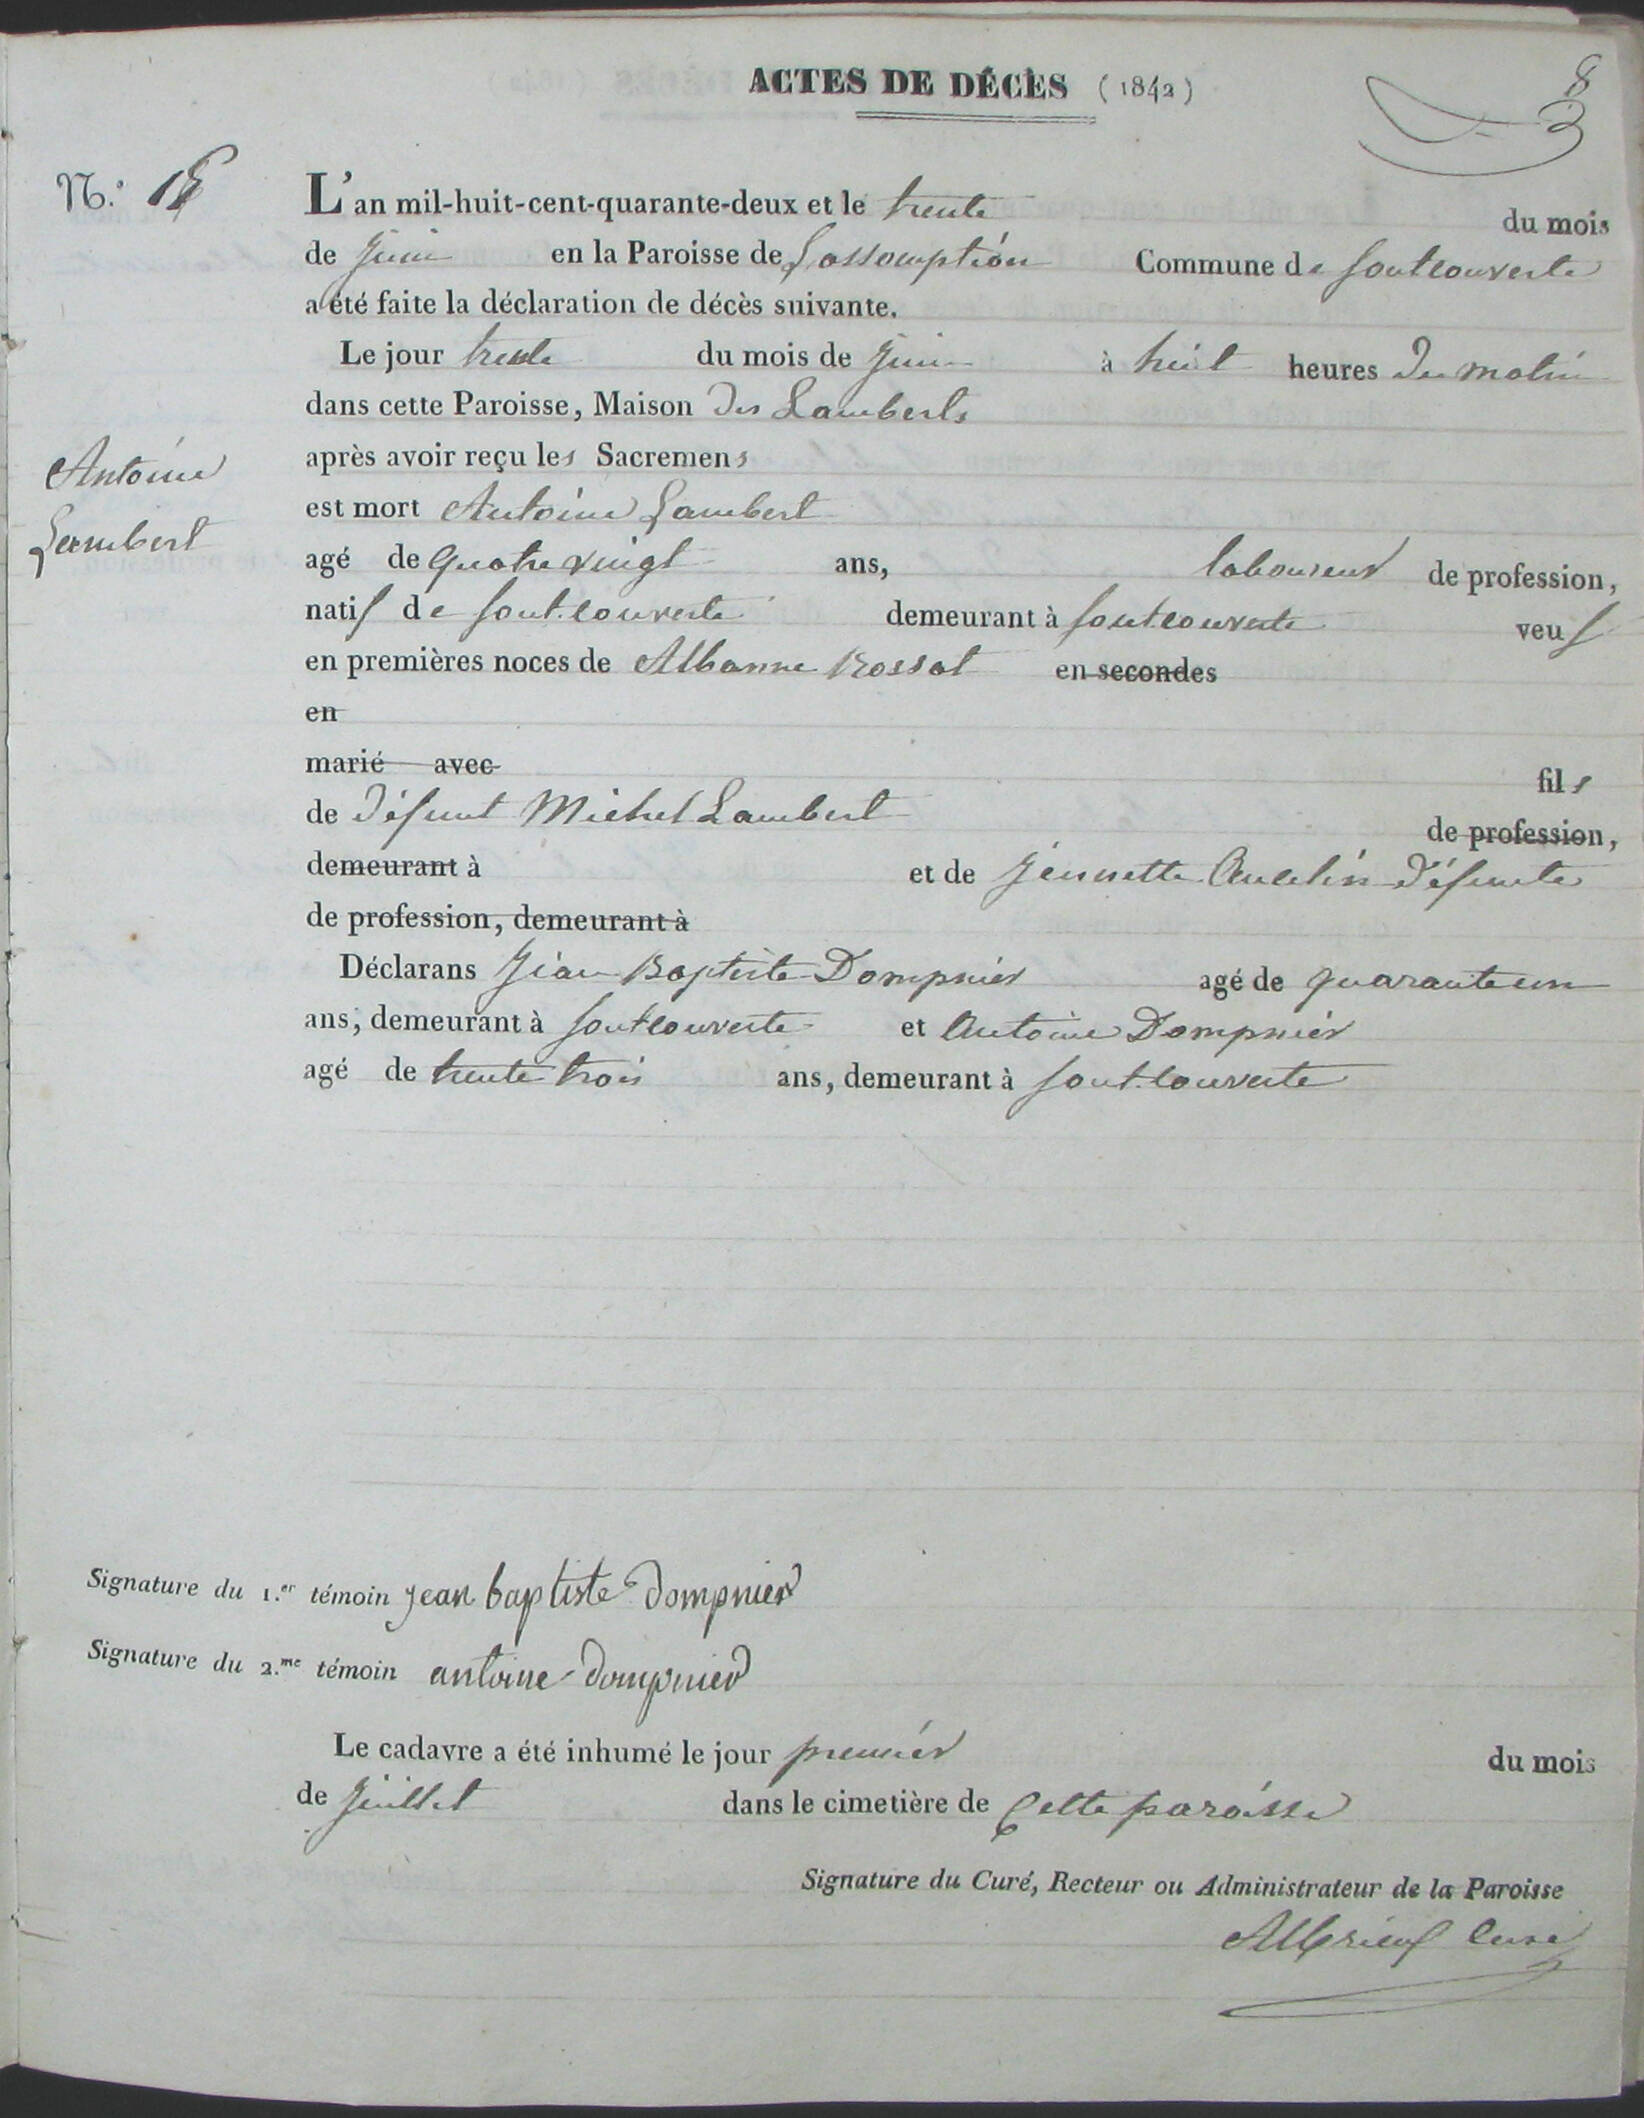 ACTES DE DÉCÈS (1842)
8
N.º 15
L'an mil-huit-cent-quarante-deux et le trente du mois
de Juin en la Paroisse de L'assomption Commune de fontcouverte
a été faite la déclaration de décès suivante.
Le jour trente du mois de Juin à huit heures Du matin
dans cette Paroisse, Maison Des Lamberts
après avoir reçu les Sacremens
Antoine
Lambert
est mort Antoine Lambert
agé de quatre vingt ans, laboureur de profession,
natif de font.couverte demeurant à fontcouverte veuf
en premières noces de Albanne Rossat en secondes
en
marié avec fils
de défunt Michel Lambert de profession,
demeurant à et de Jeannette défunte
de profession, demeurant à
Déclarans Jean Baptiste Dompnier agé de quarante un
ans, demeurant à fontcouverte et Antoine Dompnier
agé de trente trois ans, demeurant à font.couverte
Signature du 1.er témoin jean baptiste dompnier
Signature du 2.me témoin antoine dompnier
Le cadavre a été inhumé le jour premier du mois
de Juillet dans le cimetière de Cette paroisse
Signature du Curé, Recteur ou Administrateur de la Paroisse
Albrieux Curé